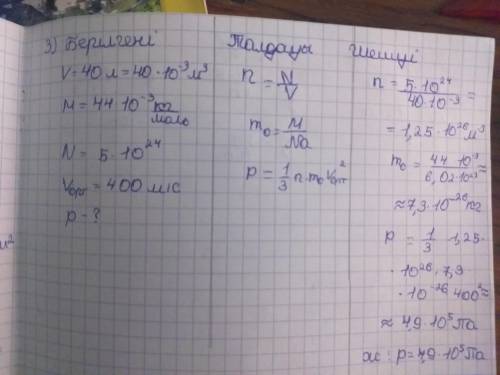 3) Берілгені
V = 40 л = 40·10⁻³ м³
M = 44·10⁻³ кг/моль
N = 5·10²⁴
Vорт = 400 м/с
p - ?
Талдау
n = N/V
m₀ = M/Na
p = 1/3 n·m₀ Vорт²
Шешуі
n = 5·10²⁴/40·10⁻³ =
= 1,25·10²⁶ м³
m₀ = 44·10⁻³/6,02·10²³ ≈
≈ 7,3·10⁻²⁶ кг
p = 1/3 1,25·
·10²⁶·7,9
·10⁻²⁶ 400² ≈
≈ 4,9·10⁵ Па
ж: p = 4,9·10⁵ Па